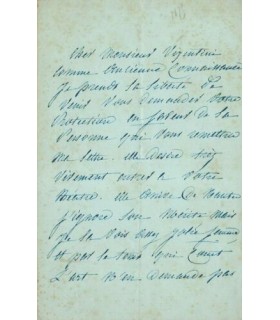 Cher Monsieur Vizentini
comme Ancienne Connaissance
je prends la liberté de
venir vous demander votre
Protection en faveur de la
Personne qui vous remettra
ma lettre. elle désire
vivement entrer à votre
théâtre. elle
j'ignore son mérite mais
je la vois assez jolie femme
et par le tems qui court
l'art n'en demande pas